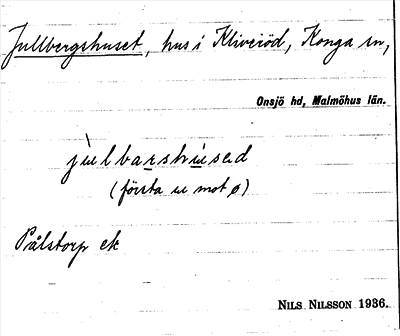 Jullbergshuset, hus i Kliveröd, Konga sn,
Onsjö hd, Malmöhus län.
jùlbarshùsəd
(första u mot ø)
Pålstorp ek
NILS NILSSON 1936.